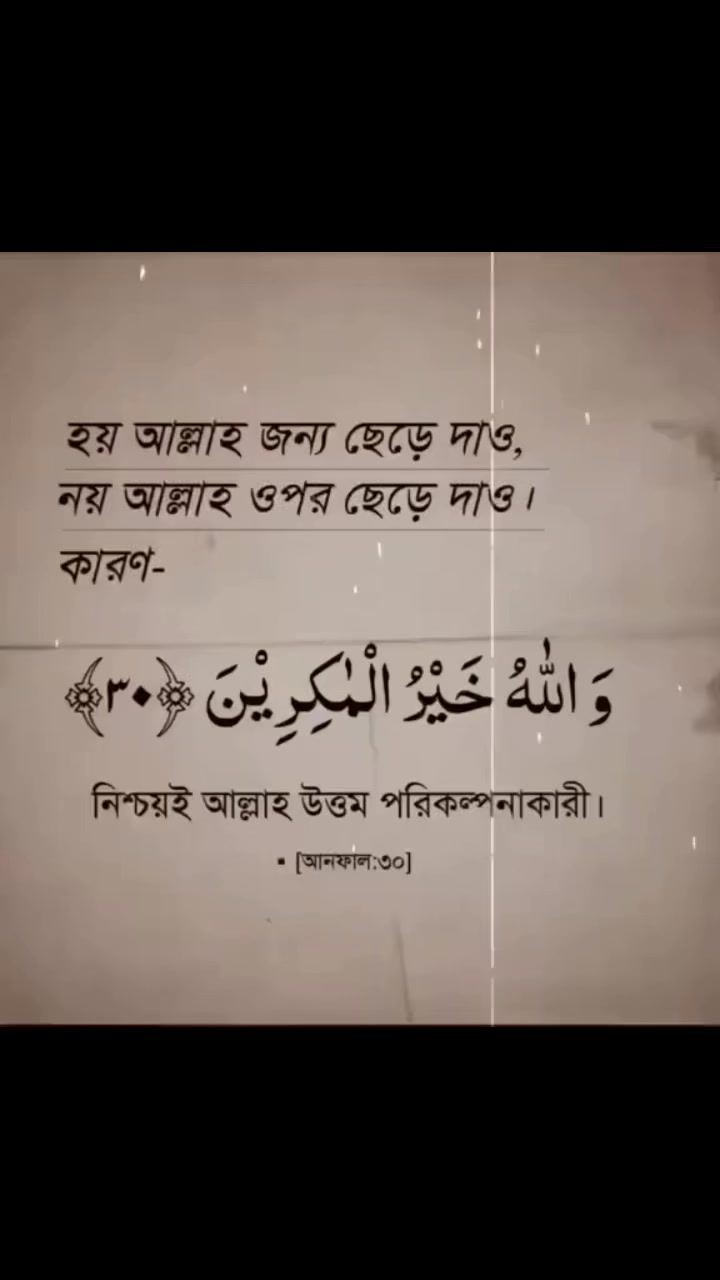 হয় আল্লাহ জন্য ছেড়ে দাও,
নয় আল্লাহ ওপর ছেড়ে দাও।
কারণ-
وَاللّٰهُ خَيْرُ الْمٰكِرِيْنَ ﴿٣٠﴾
নিশ্চয়ই আল্লাহ উত্তম পরিকল্পনাকারী।
▪ [আনফাল:৩০]